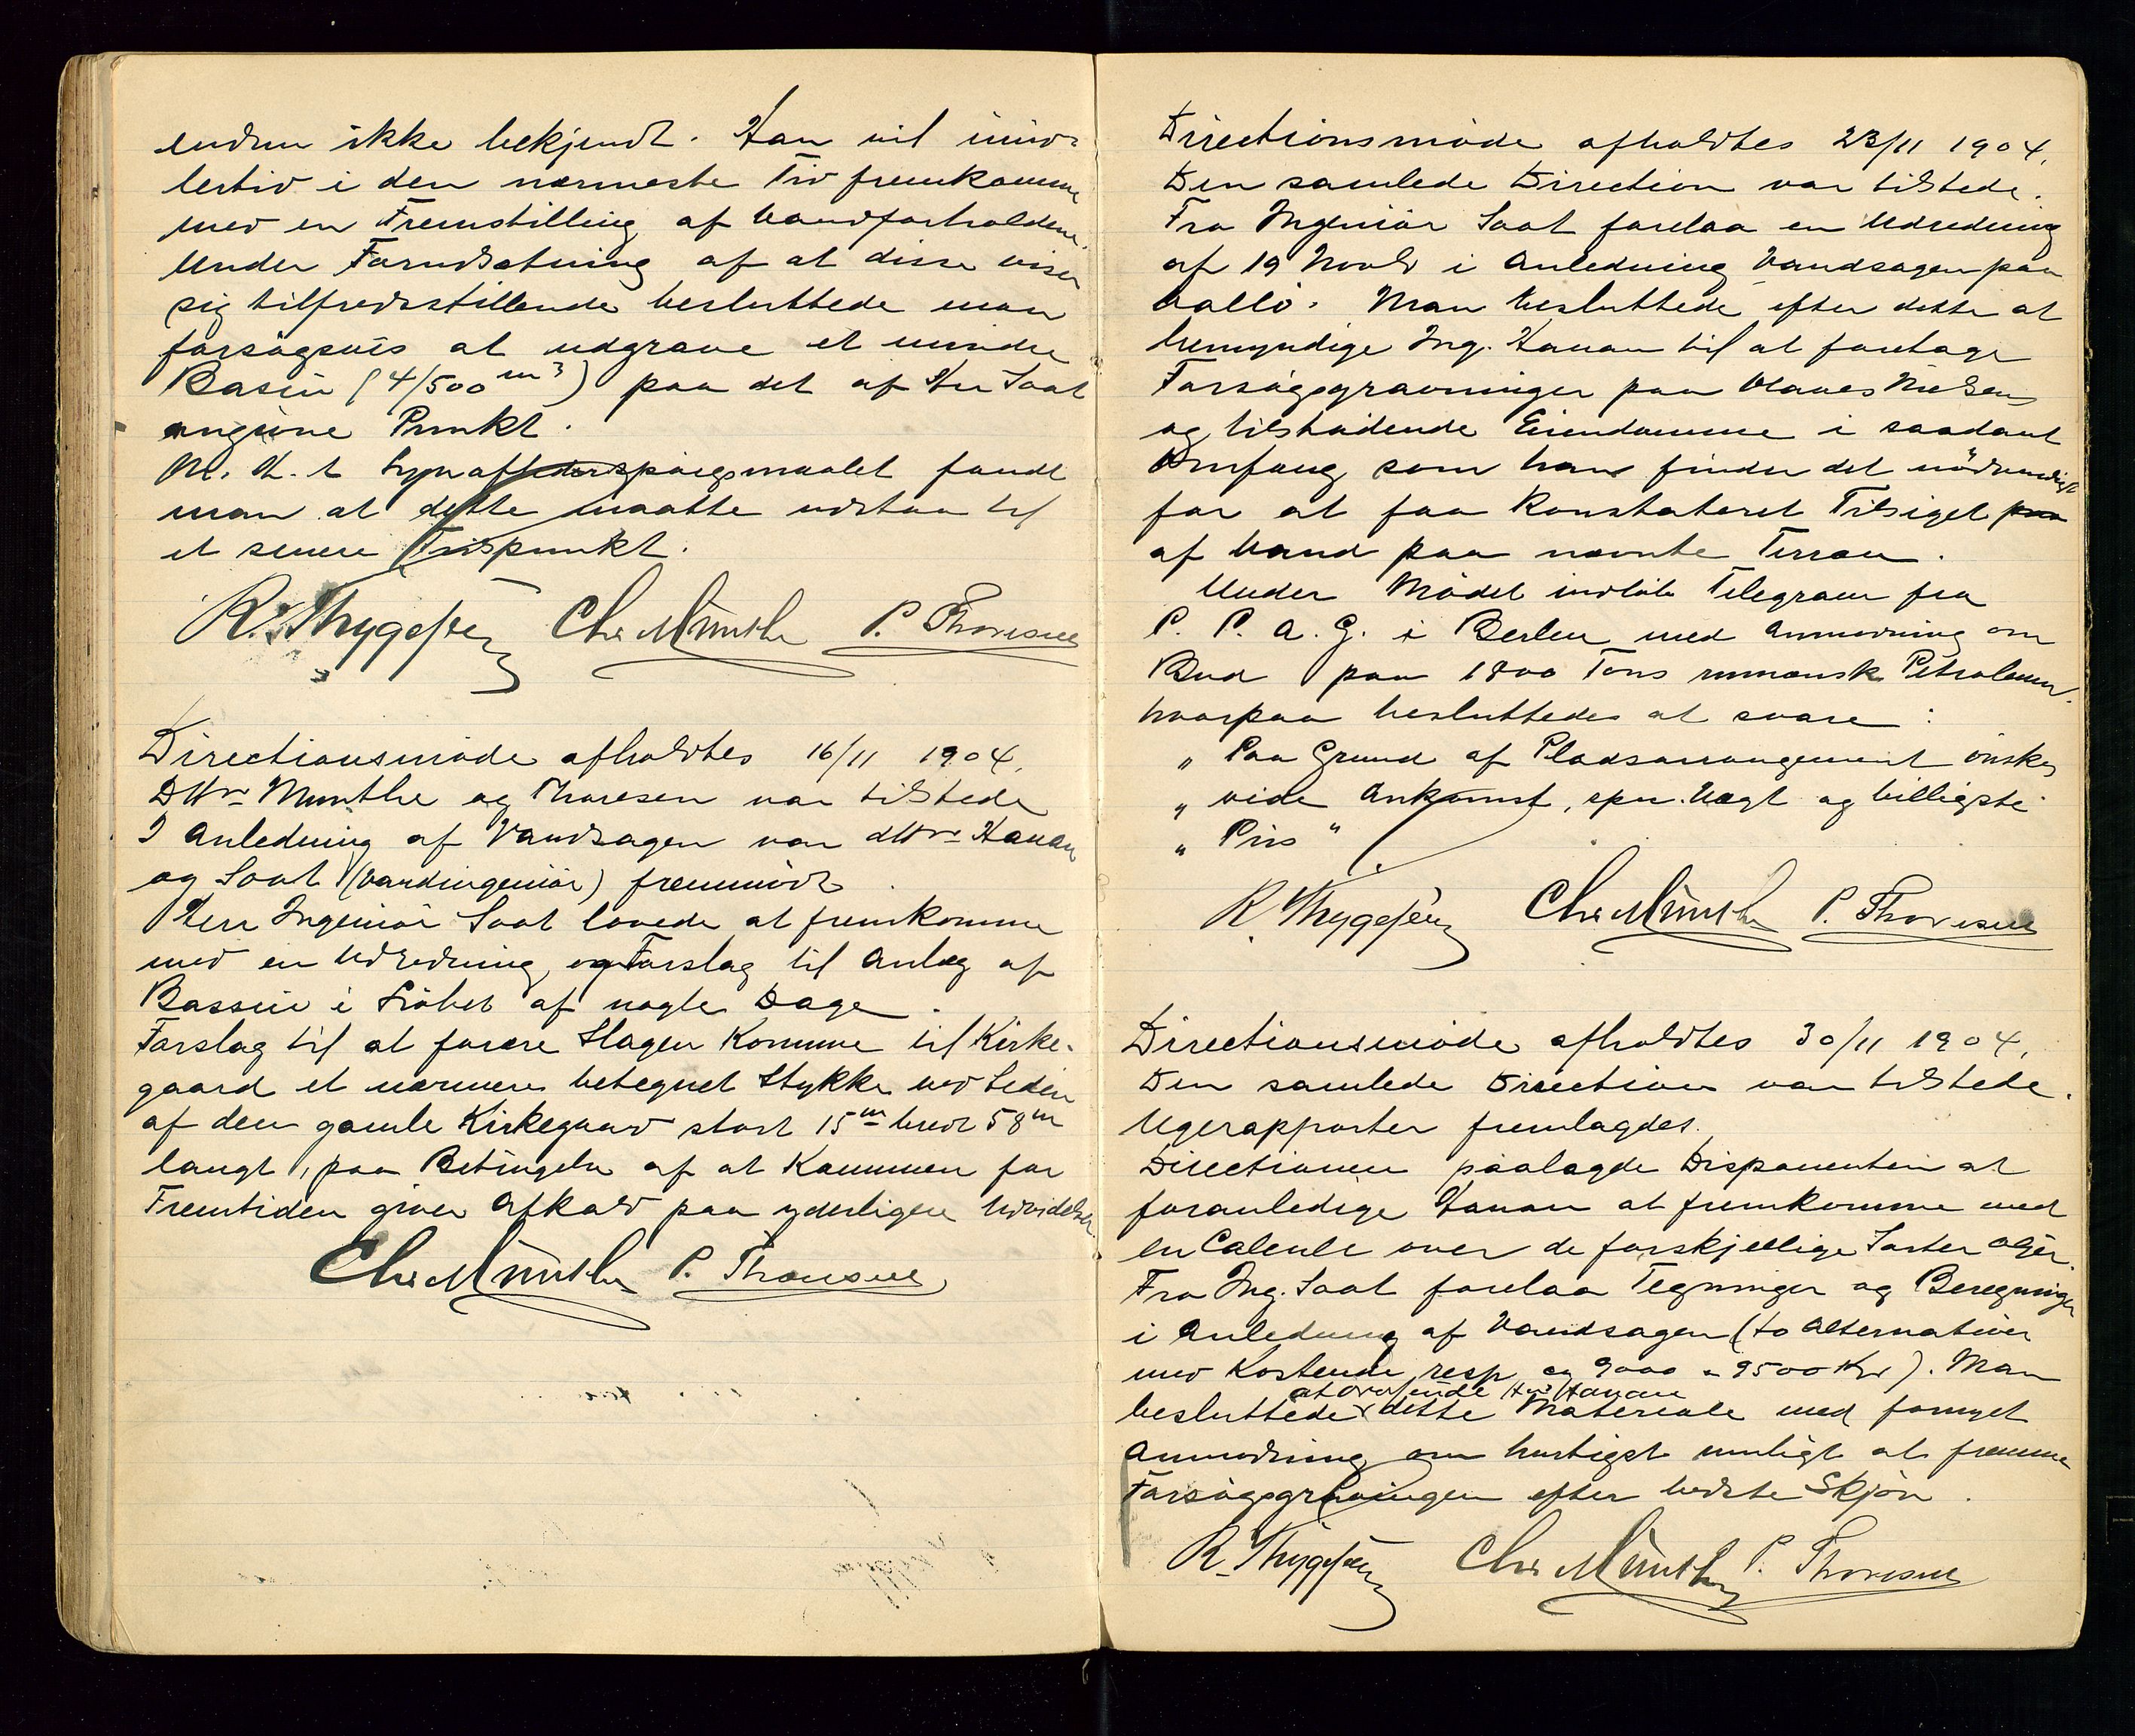 endnu ikke bekjendt. Han vil imid-
lertid i den nærmeste Tid fremkomme
med en Fremstilling af Vandforholdene.
Under Forudsætning af at disse viser
sig tilfredsstillende besluttede man
forsøgsvis at udgrave et mindre
Basin (4/500 m3) paa det af Hr Saat
angivne Punkt.
M. H. t. spørgsmaalet fandt
man at dette maatte udstaa til
et senere Tidspunkt.
R. Thygesen Chr. Münster P. Thoresen
Directionsmöde afholdtes 16/11 1904.
DHrr Munthe og Thoresen var tilstede
I Anledning af Vandsagen var dHrr Hanan
og Saat (Vandingeniör) fremmödt.
Herr Ingeniör Saat lovede at fremkomme
med en Udredning og Forslag til Anlæg af
Bassin i Löbet af nogle Dage.
Forslag til at forære Slagen Komme til Kirke-
gaard et nærmere betegnet Stykke ved Siden
af den gamle Kirkegaard stort 15m bredt 58m
langt, paa Betingelse af at Kommunen for
Fremtiden giver Afkald paa yderligere Udvidelser
Chr. Münster P. Thoresen
Directionsmöde afholdtes 23/11 1904.
Den samlede Direction var tilstede.
Fra Ingeniör Saat forelaa en Udredning
af 19 Novbr i Anledning Vandsagen paa
Vallö. Man besluttede efter dette at
bemyndige Ing. Hanan til at foretage
Forsøgsgravninger paa Olaves Nielsens
og tilstödende Eiendomme i saadant
Omfang som han finder det nödvendigt
for at faa konstateret Tilsiget paa
af Vand paa nævnte Terræn.
Under Mödet indlöb Telegram fra
P. P. A. G. i Berlin med Anmodning om
Bud paa 1800 Tons rumænsk Petroleum,
hvorpaa besluttedes at svare:
„ Paa Grund af Pladsarrangement önskes
„ vide Ankomst, spec. Vægt og billigste
„ Pris "
R. Thygesen Chr. Münster P. Thoresen
Directionsmöde afholdtes 30/11 1904.
Den samlede Direction var tilstede.
Ugerapporter fremlagdes.
Directionen paalagde Disponenten at
foranledige Hanan at fremkomme med
en Calcule over de forskjellige Sorter Oljer.
Fra Ing. Saat forelaa Tegninger og Beregninger
i Anledning af Vandsagen (to Alternativer
med Kostende resp. ca 9000 a 9500 Kr). Man
at oversende Hr Hanan
besluttede dette Materiale med fornyet
Anmodning om hurtigst muligt at fremme
Forsøgsgravningen efter bedste Skjön.
R. Thygesen Chr. Münster P. Thoresen